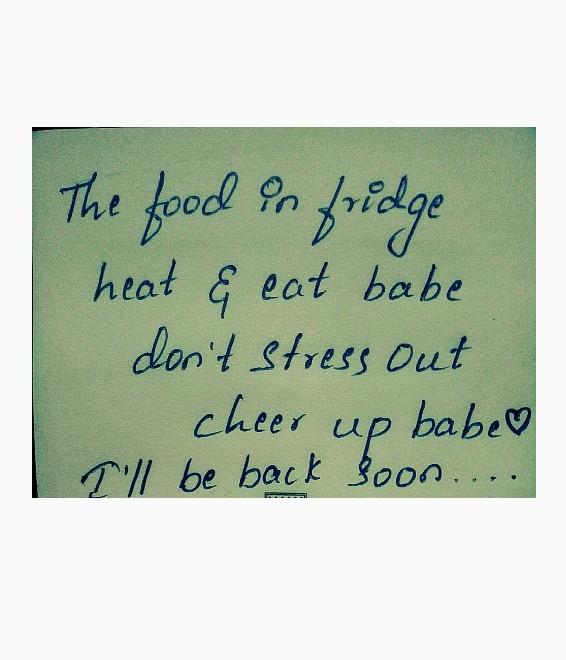 The food in fridge
heat & eat babe
don't stress out
cheer up babe♡
I'll be back soon....